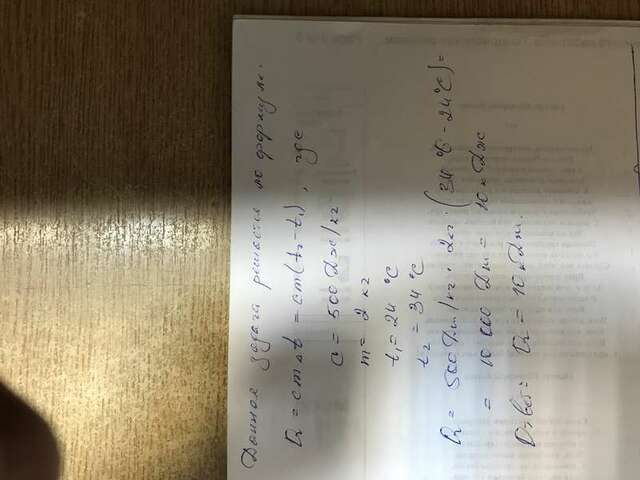 Данная задача решается по формуле:
Q = cm△t = cm(t₂-t₁), где
c = 500 Дж/кг
m = 2 кг
t₁ = 24 °C
t₂ = 34 °C
Q = 500 Дж/кг · 2кг · (34 °C - 24°C) =
= 10 000 Дж = 10 кДж
Ответ: Q = 10 кДж.